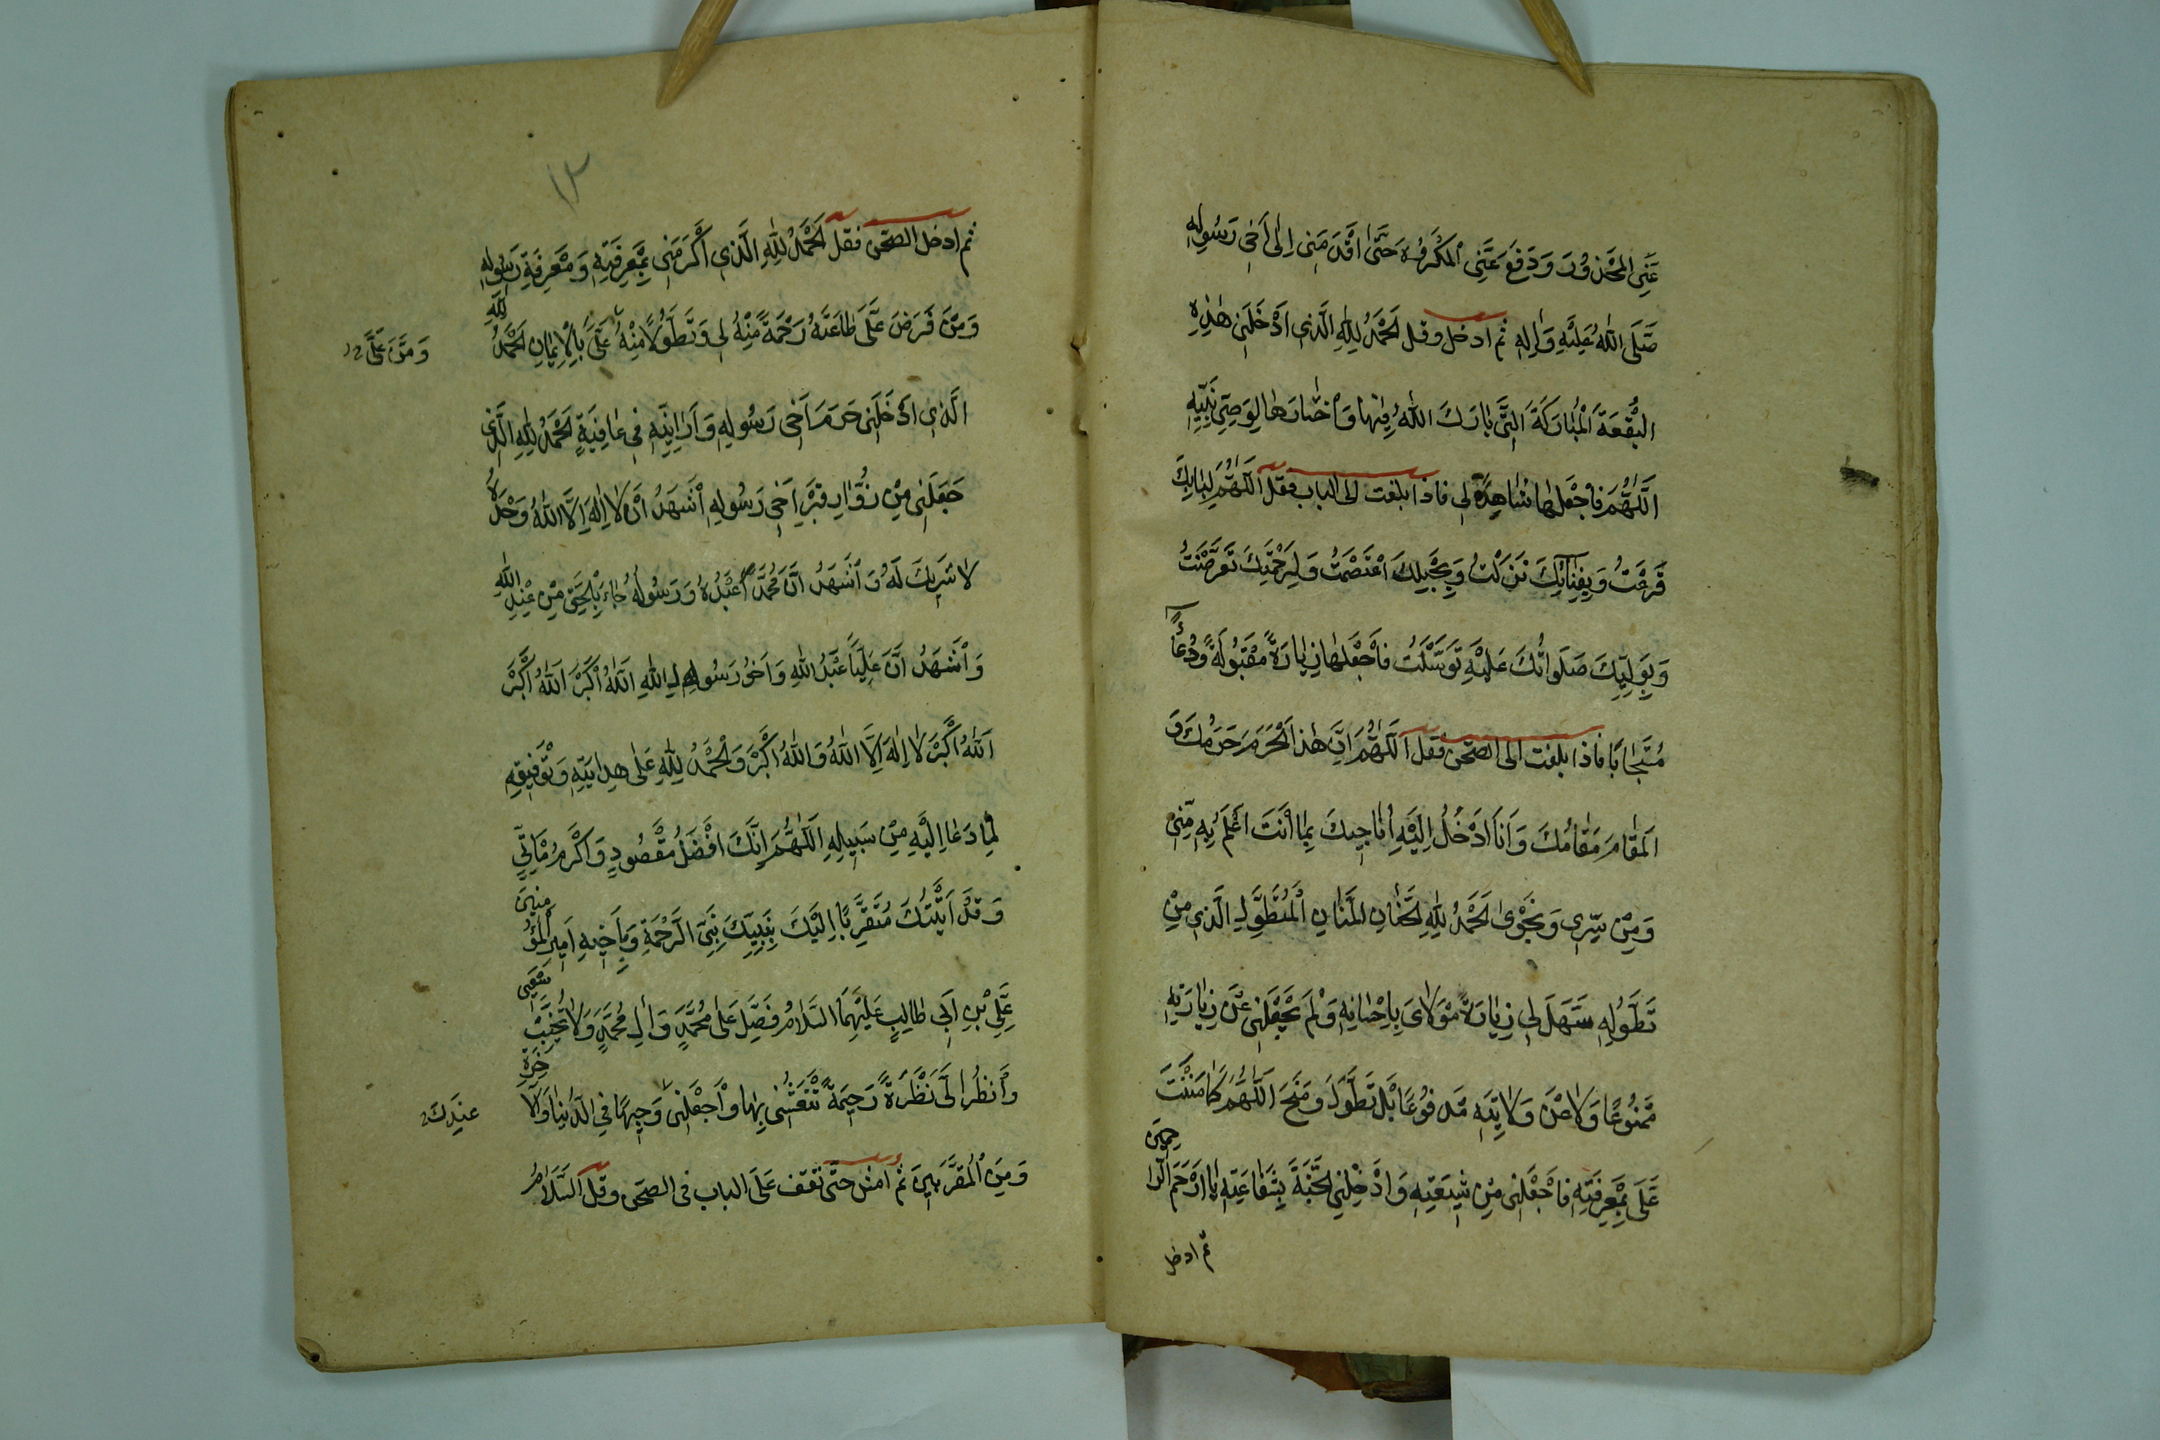 عَنِّي الْمَحْذُورَ وَدَفَعَ عَنِّي الْمَكْرُوهَ حَتَّى أَقْدَمَنِي إِلَى أَخِي رَسُولِهِ
صَلَّى اللهُ عَلَيْهِ وَآلِهِ ثم ادخل وقل الْحَمْدُ لِلّهِ الَّذِي أَدْخَلَنِي هٰذِهِ
الْبُقْعَةَ الْمُبَارَكَةَ الَّتِي بَارَكَ اللهُ فِيهَا وَاخْتَارَهَا لِوَصِيِّ نَبِيِّهِ
اَللّٰهُمَّ فَاجْعَلْهَا شَاهِدَةً لِي فاذا بلغت الى الباب فقل اَللّٰهُمَّ لِبَابِكَ
قَرَعْتُ وَبِفِنَائِكَ نَزَلْتُ وَبِحَبْلِكَ اعْتَصَمْتُ وَلِرَحْمَتِكَ تَعَرَّضْتُ
وَبِوَلِيِّكَ صَلَوَاتُكَ عَلَيْهِ تَوَسَّلْتُ فَاجْعَلْهَا زِيَارَةً مَقْبُولَةً وَدُعَاءً
مُسْتَجَابًا فاذا بلغت الى الصحن فقل اَللّٰهُمَّ إِنَّ هٰذَا الْحَرَمَ حَرَمُكَ وَ
الْمَقَامَ مَقَامُكَ وَأَنَا أَدْخُلُ إِلَيْهِ أُنَاجِيكَ بِمَا أَنْتَ أَعْلَمُ بِهِ مِنِّي
وَمِنْ سِرِّي وَنَجْوَايَ الْحَمْدُ لِلّهِ الْحَنَّانِ الْمَنَّانِ الْمُتَطَوِّلِ الَّذِي مِنْ
تَطَوُّلِهِ سَهَّلَ لِي زِيَارَةَ مَوْلَايَ بِإِحْسَانِهِ وَلَمْ يَجْعَلْنِي عَنْ زِيَارَتِهِ
مَمْنُوعًا وَلَا عَنْ وَلَايَتِهِ مَدْفُوعًا بَلْ تَطَوَّلَ وَمَنَحَ اَللّٰهُمَّ كَمَا مَنَنْتَ
عَلَيَّ بِمَعْرِفَتِهِ فَاجْعَلْنِي مِنْ شِيعَتِهِ وَأَدْخِلْنِي الْجَنَّةَ بِشَفَاعَتِهِ يَا أَرْحَمَ الرَّاحِمِينَ
ثم ادخل
١٣
ثم ادخل الصحن فقل الْحَمْدُ لِلّهِ الَّذِي أَكْرَمَنِي بِمَعْرِفَتِهِ وَمَعْرِفَةِ رَسُولِهِ
وَمَنْ فَرَضَ عَلَيَّ طَاعَتَهُ رَحْمَةً مِنْهُ لِي وَتَطَوُّلًا مِنْهُ عَلَيَّ بِالْإِيمَانِ الْحَمْدُ لِلّهِ
وَمَنَّ عَلَيَّ
الَّذِي أَدْخَلَنِي حَرَمَ أَخِي رَسُولِهِ وَأَرَانِيهِ فِي عَافِيَةٍ الْحَمْدُ لِلّهِ الَّذِي
جَعَلَنِي مِنْ زُوَّارِ قَبْرِ أَخِي رَسُولِهِ أَشْهَدُ أَنْ لَا إِلٰهَ إِلَّا اللهُ وَحْدَهُ
لَا شَرِيكَ لَهُ وَأَشْهَدُ أَنَّ مُحَمَّدًا عَبْدُهُ وَرَسُولُهُ جَاءَ بِالْحَقِّ مِنْ عِنْدِ اللهِ
وَأَشْهَدُ أَنَّ عَلِيًّا عَبْدُ اللهِ وَأَخُو رَسُولِ اللهِ اَللهُ أَكْبَرُ اَللهُ أَكْبَرُ
اَللهُ أَكْبَرُ لَا إِلٰهَ إِلَّا اللهُ وَاللهُ أَكْبَرُ وَالْحَمْدُ لِلّهِ عَلَى هِدَايَتِهِ وَتَوْفِيقِهِ
لِمَا دَعَا إِلَيْهِ مِنْ سَبِيلِهِ اَللّٰهُمَّ إِنَّكَ أَفْضَلُ مَقْصُودٍ وَأَكْرَمُ مَأْتِيٍّ
وَقَدْ أَتَيْتُكَ مُتَقَرِّبًا إِلَيْكَ بِنَبِيِّكَ نَبِيِّ الرَّحْمَةِ وَبِأَخِيهِ أَمِيرِ الْمُؤْمِنِينَ
عَلِيِّ بْنِ أَبِي طَالِبٍ عَلَيْهِمَا السَّلَامُ فَصَلِّ عَلَى مُحَمَّدٍ وَآلِ مُحَمَّدٍ وَلَا تُخَيِّبْ سَعْيِي
وَانْظُرْ إِلَيَّ نَظْرَةً رَحِيمَةً تَنْعَشُنِي بِهَا وَاجْعَلْنِي وَجِيهًا فِي الدُّنْيَا وَالْآخِرَةِ
عِنْدَكَ
وَمِنَ الْمُقَرَّبِينَ ثُمَّ امش حتى تقف عَلَى الباب فى الصحن وقل السَّلَامُ